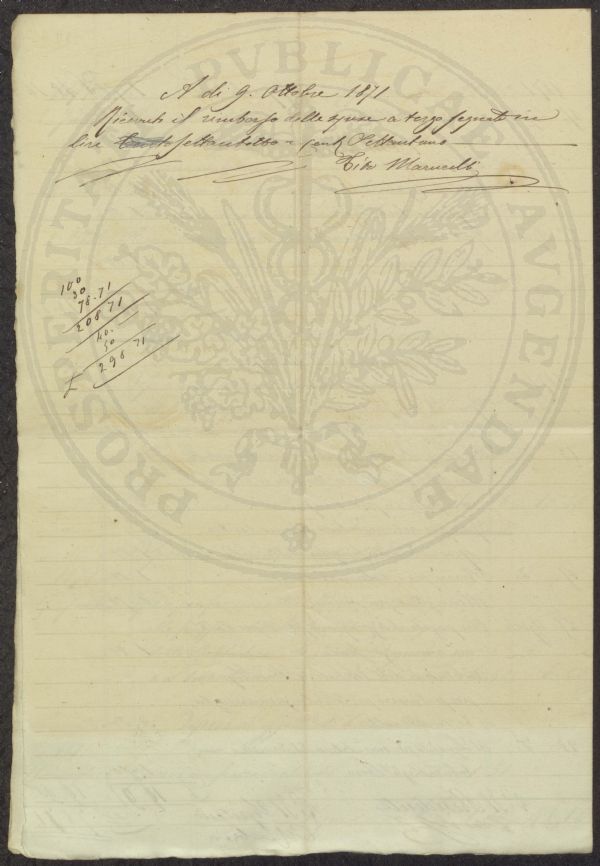 A di 9. Ottobre 1871
Ricevuto il rimborso delle spese a tergo segnate in
lire Settantotto e cent. Settantuno
Tito Marucelli
100
30
78.71
208.71
40.
50
£ 298 71
PROSPERITATI PVBLICAE AVGENDAE